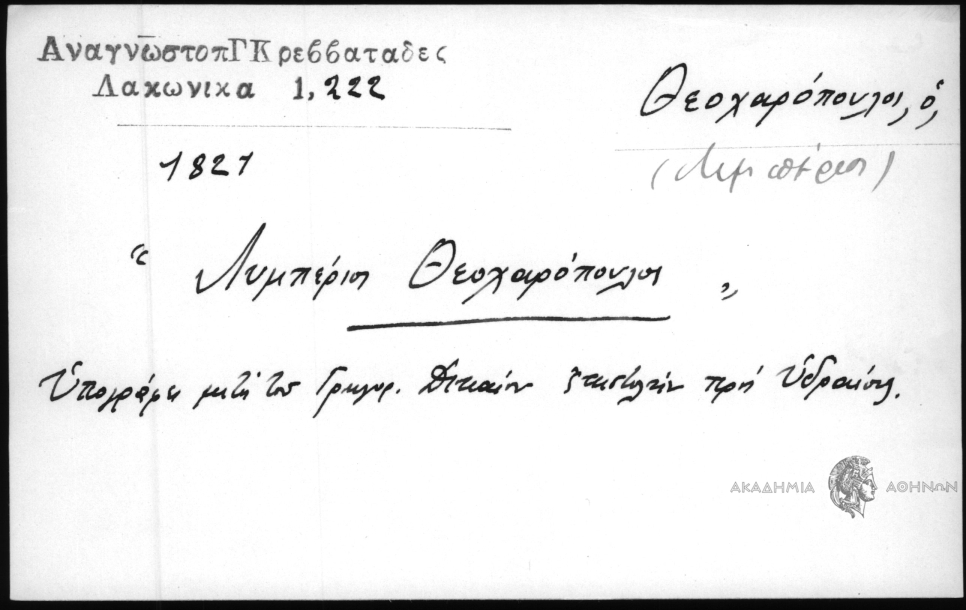 ΑναγνωστοπΓΚρεββαταδες
Λακωνικα 1, 222
Θεοχαρόπουλος, ὁ,
(Λυμπέριος)
1821
“ Λυμπέριος Θεοχαρόπουλος „
Ὑπογράφει μετὰ τοῦ Γρηγορ. Δικαίου πρὸς Ὑδραίους.
ΑΚΑΔΗΜΙΑ ΑΘΗΝΩΝ